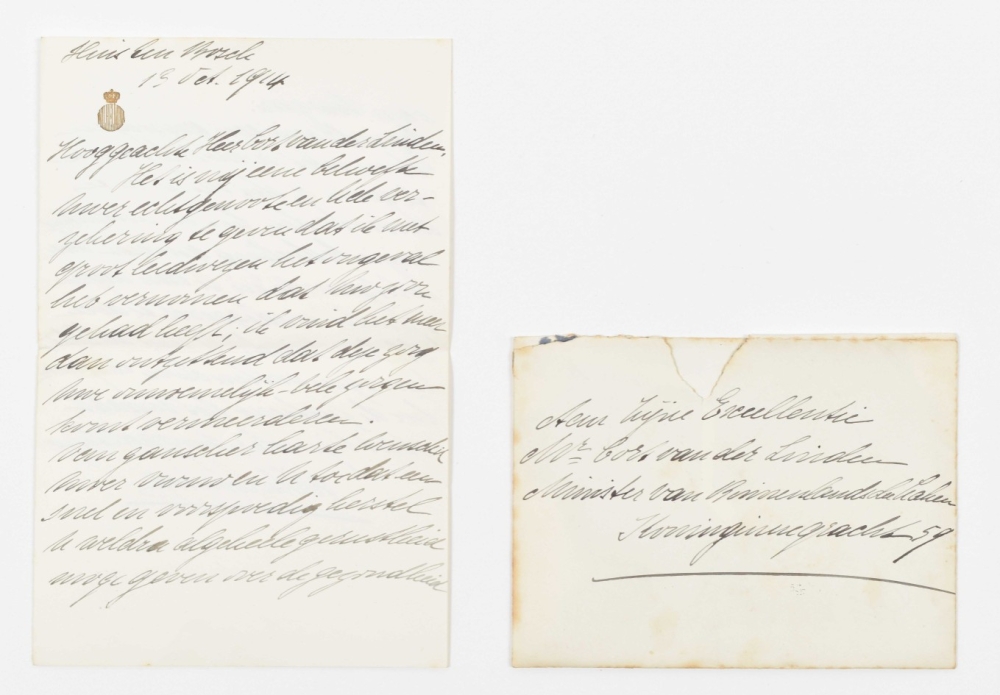 Huis ten Bosch
1e Oct. 1914
Hooggeachte Heer Cort van der Linden,
Het is mij eene behoefte
Uwer echtgenoote en U de ver-
zekering te geven dat ik met
groot leedwezen het ongeval
heb vernomen dat Uw zoon
gehad heeft; ik vind het meer
dan ontzettend dat deze zorg
Uwe onnoemelijk vele zorgen
komt vermeerderen.
Van ganscher harte wensch ik
Uwer vrouw en U toe dat een
snel en voorspoedig herstel
U weldra algeheele gerustheid
moge geven over de gezondheid
Aan Zijne Excellentie
Mr Cort van der Linden
Minister van Binnenlandsche Zaken
Koninginnegracht 59